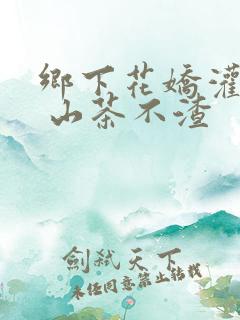 鄉下花嬌灌
山茶不渣
劍弒天下
未經同意禁止轉載